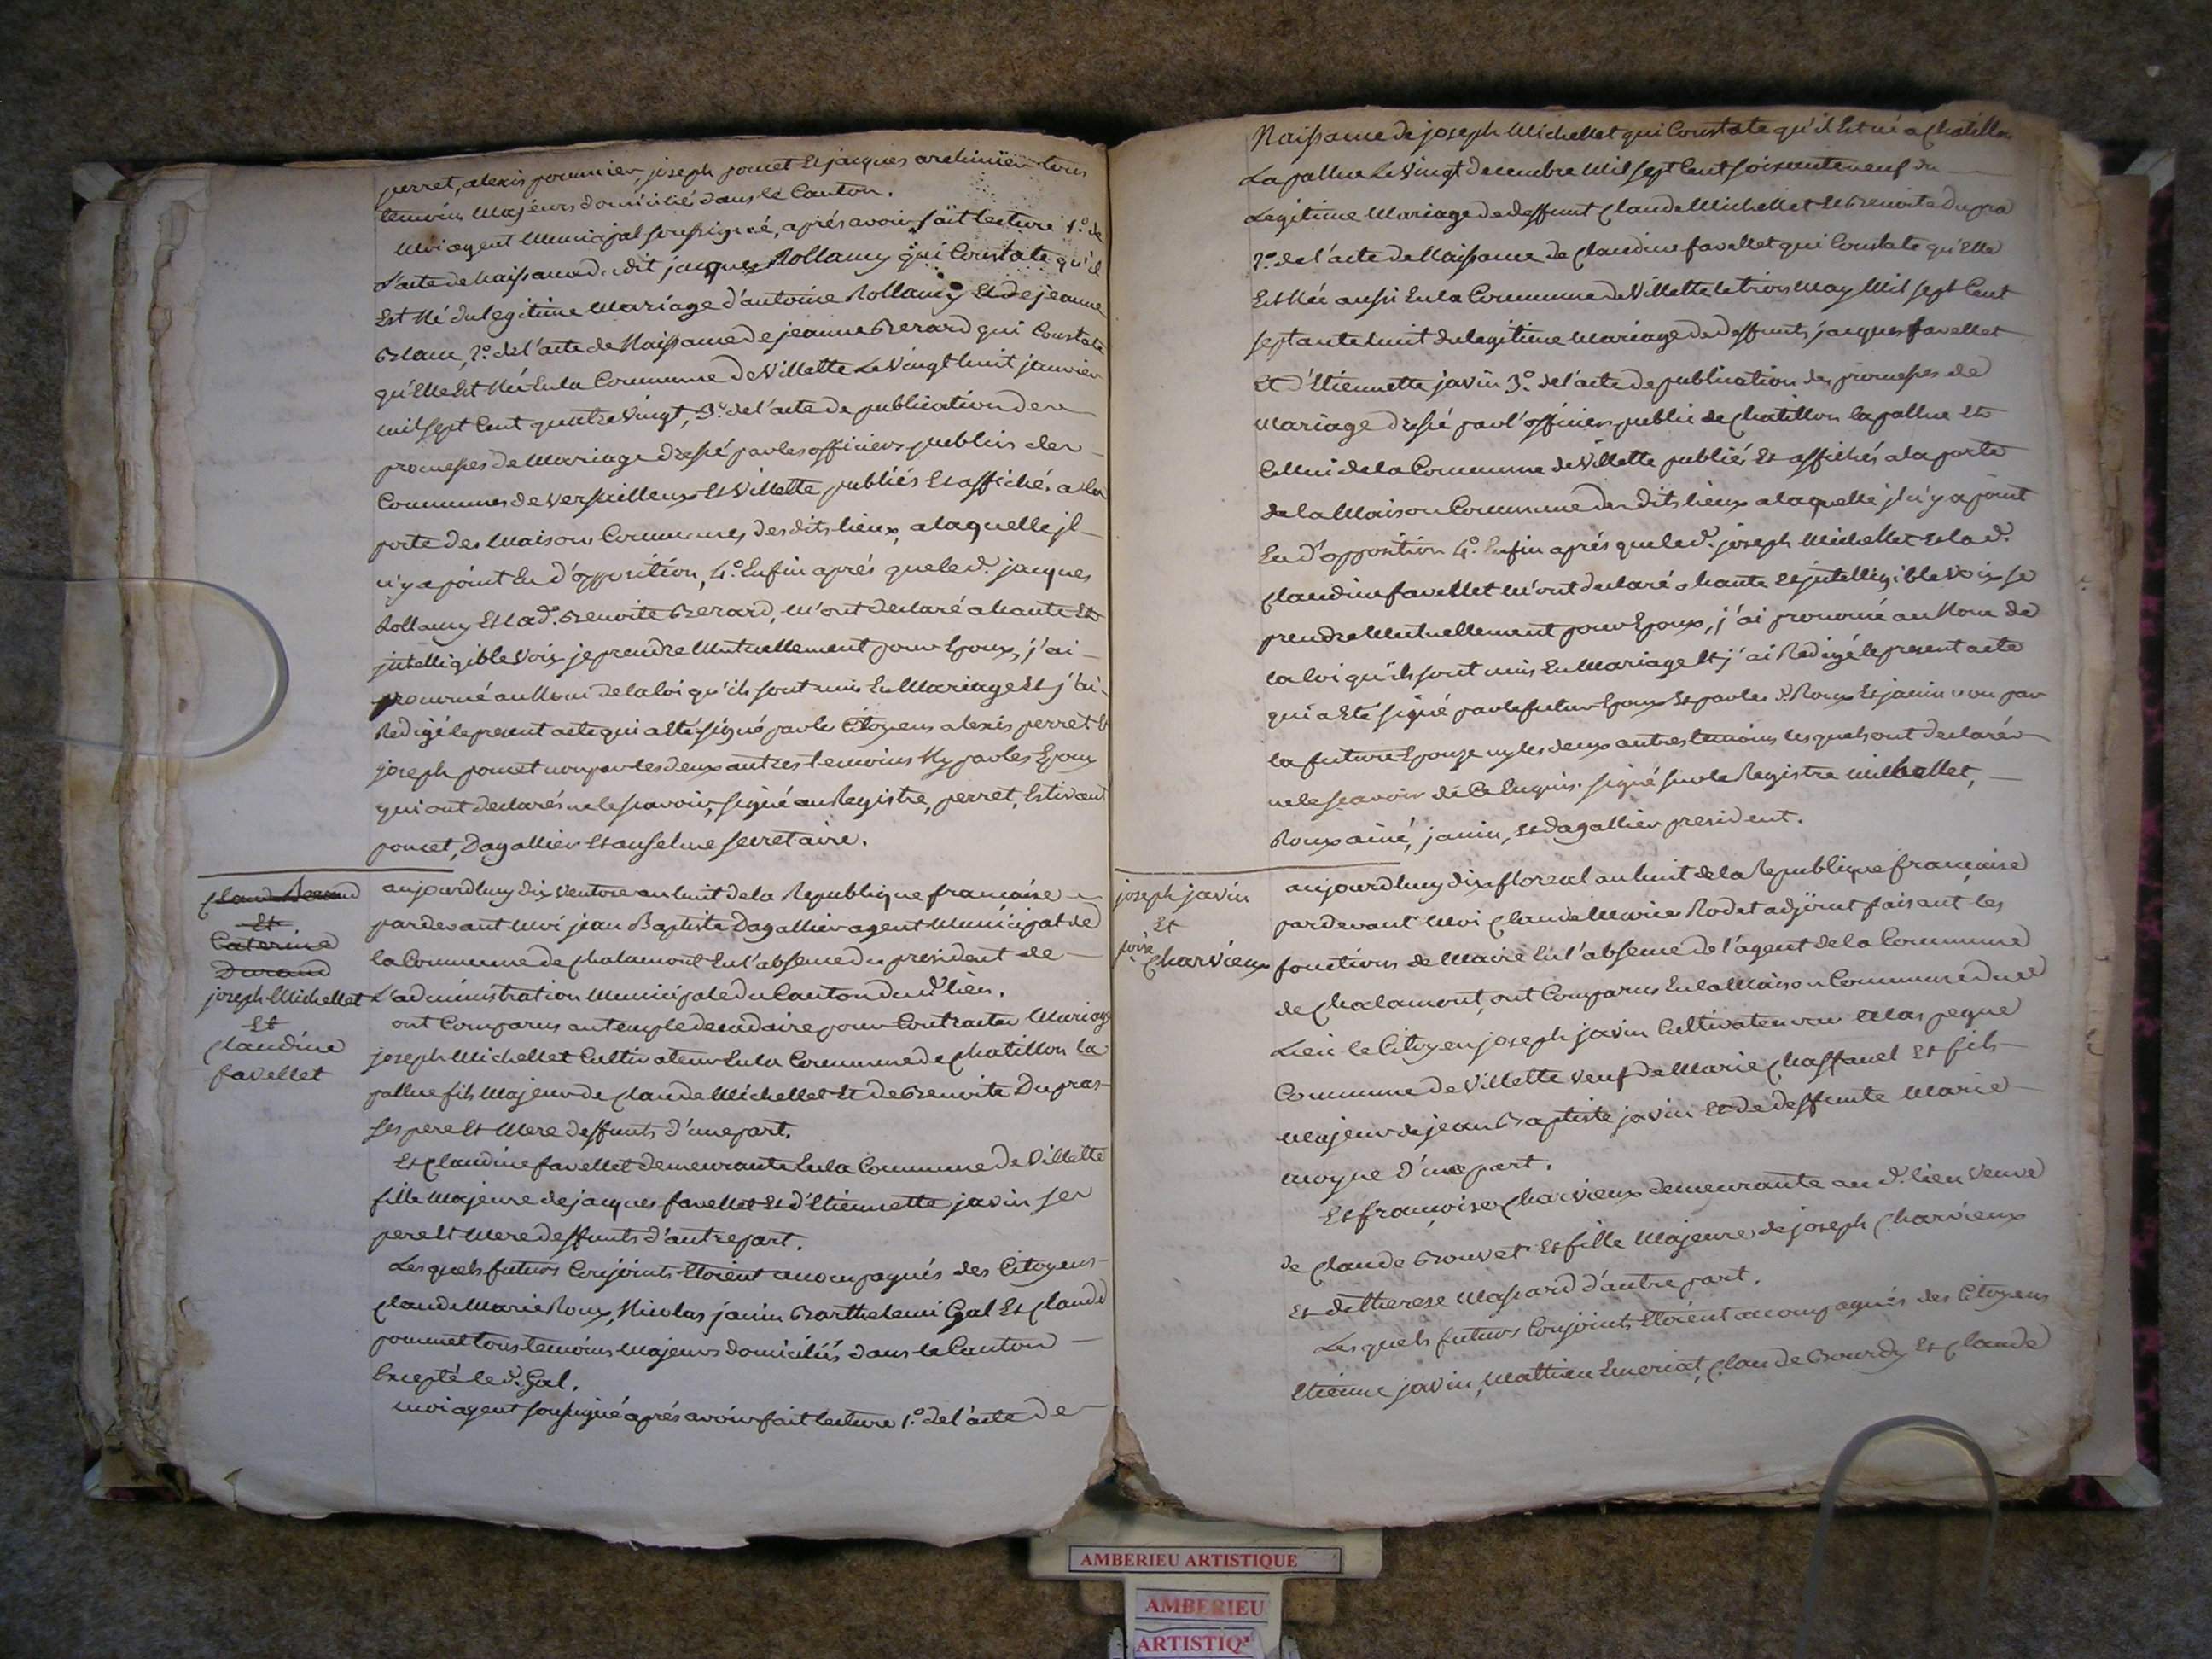 perret, alexis pommier, joseph poncet Et jacques archinier tous
temoins Majeurs domicilié dans le Canton.
Moi agent Municipal soussigné, aprés avoir fait lecture 1.° de
L'acte de Naissance du dit jacques Rollamy qui Constate qu'il
Est Né du legitime Mariage d'antoine Rollamy Et de jeanne
2.° de l'acte de Naissance de jeanne Berard qui Constate
qu'Elle Est Née En la Commune de Villette Le Vingt huit janvier
mil sept Cent quatre Vingt, 3.° de l'acte de publication des
promesses de Mariage dressé par les officiers publics des
Communes de Versailleux Et Villette publiés Et affiché a la
porte des Maisons Communes des dits lieux, a laquelle jl
n'y a point Eu d'opposition, 4.° Enfin aprés que le d. jacques
Rollamy Et la d. Benoite Berard, m'ont declaré a haute Et
jntelligible Voix se prendre Mutuellement pour Epoux, j'ai
prononcé au Nom de la loi qu'ils sont unis En Mariage Et j'ai
Redigé le present acte qui a Eté signé par le Citoyens alexis perret Et
joseph poncet non par les deux autres temoins Ny par les Epoux
qui ont declarés ne le scavoir, signé au Registre, perret,
poncet, Dagallier Et anselme secretaire.
Claud Berard
Et
Caterine
Durand
joseph Michellet
Et
Claudine
favellet
aujourdhuy dix Ventose an huit de la Republique francaise
pardevant Moi jean Baptiste Dagallier agent Municipal de
la Commune de Chalamont En l'absence du president de
L'administration Municipale du Canton du d. lieu.
ont Comparus au temple decadaire pour Contracter Mariage
joseph Michellet Cultivateur En la Commune de Chatillon la
pallue fils Majeur de Claude Michellet Et de Benoite Dupras
ses pere Et Mere deffunts d'une part.
Et Claudine favellet demeurante En la Commune de Villette
fille Majeure de jacques favellet Et d'Etiennette javin ses
pere Et Mere deffunts d'autre part.
Les quels futurs Conjoints Etoient accompagnés des Citoyens
Claude Marie Roux, Nicolas janin Barthelemi Gal Et Claude
pommet tous temoins Majeurs domiciliés dans le Canton
Excepté le d. Gal.
moi agent soussigné aprés avoir fait lecture 1.° de l'acte de
Naissance de joseph Michellet qui Constate qu'il Est né a Chatillon
La pallue Le Vingt decembre Mil sept Cent soixante neuf du
Legitime Mariage de deffunt Claude Michellet Et Benoite Dupra
2.° de l'acte de Naissance de Claudine favellet qui Constate qu'Elle
Est Née aussi En la Commune de Villette le trois May Mil sept Cent
septante huit du legitime Mariage de deffunts jacques favellet
Et d'Etiennette javin 3.° de l'acte de publication des promesses de
Mariage dressé par l'officier public de Chatillon la pallue Et
Cellui de la Commune de Villette publiés Et affichés a la porte
de la Maison Commune des dits lieux a laquelle jl n'y a point
Eu d'opposition 4.° Enfin aprés que le d. joseph Michellet Et la d.
Claudine favellet m'ont declaré a haute Et jntelligible Voix se
prendre Mutuellement pour Epoux, j'ai prononcé au Nom de
la loi qu'ils sont unis En Mariage Et j'ai Redigé le present acte
qui a Eté signé par le futur Epoux Et par les d. Roux Et janin non par
la future Epouze ny les deux autres temoins lesquels ont declarés
ne le scavoir de Ce Enquis. signé sur le Registre michellet,
Roux ainé, janin, Et dagallier president.
joseph javin
Et
Charvieux
aujourdhuy dix floreal an huit de la Republique francaise
pardevant Moi Claude Marie Rodet adjoint faisant les
fonctions de Maire En l'absence de l'agent de la Commune
de Chalamont, ont Comparus En la Maison Commune du d
Lieu le Citoyen joseph javin Cultivateur
Commune de Villette Veuf de Marie Chaffanel Et fils
Majeur de jean Baptiste javin Et de deffunte Marie
moyne d'une part.
Et francoise Charvieux demeurante au d. lieu Veuve
de Claude Bouvet Et fille Majeure de joseph Charvieux
Et de therese Massard d'autre part.
Lesquels futurs Conjoints Etoient accompagnés des Citoyens
Etienne javin, Mathieu Emeriat, Claude Bourdy Et Claude
AMBERIEU ARTISTIQUE
AMBERIEU
ARTISTIQ